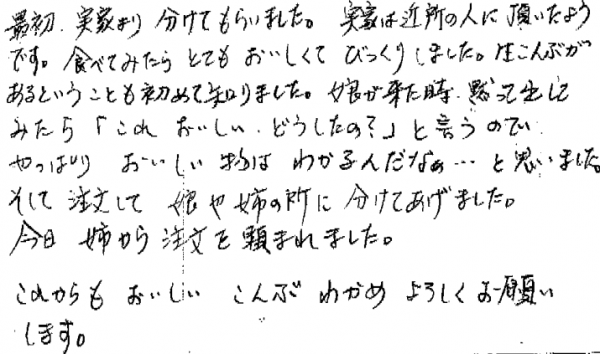 最初、実家より 分けてもらいました。 実家は近所の人に 頂いたよう
です。食べてみたら とても おいしくて びっくりしました。生こんぶが
あるということも 初めて知りました。 娘が来た時、黙って出して
みたら「これ おいしい、どうしたの?」と言うので
やっぱり おいしい物は わかるんだなぁ… と思いました。
そして 注文して 娘や姉の所に 分けてあげました。
今日 姉から 注文を 頼まれました。
これからも おいしい こんぶ わかめ よろしくお願い
します。